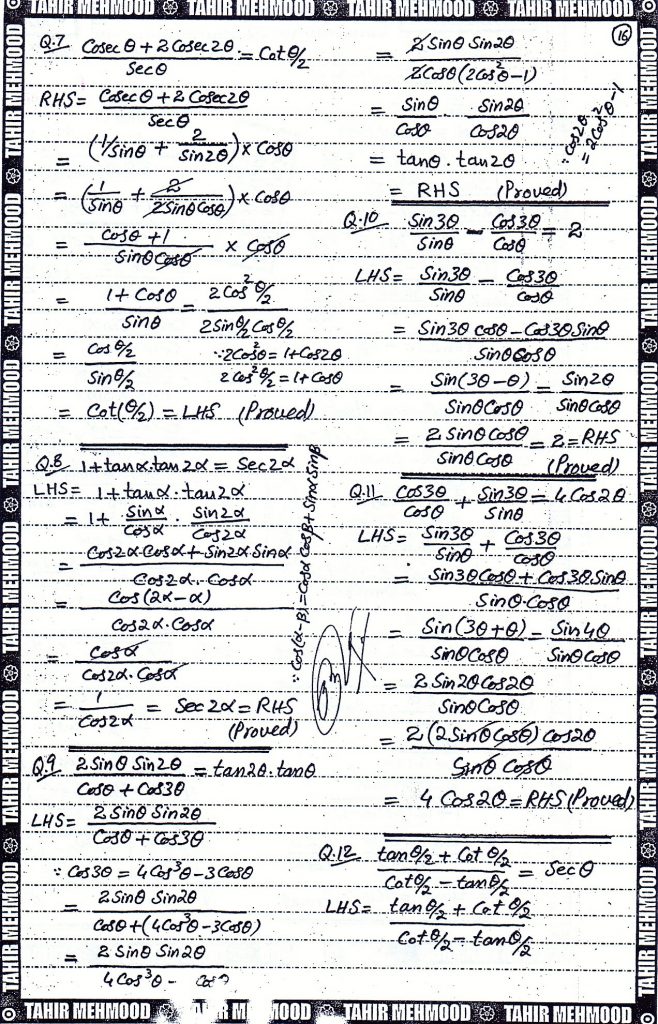 TAHIR MEHMOOD TAHIR MEHMOOD TAHIR MEHMOOD TAHIR MEHMOOD
16
Q.7 (Cosec θ + 2 Cosec 2θ)/Sec θ = Cot θ/2
RHS = (Cosec θ + 2 Cosec 2θ)/Sec θ
= (1/Sin θ + 2/Sin 2θ) × Cos θ
= (1/Sin θ + 2/(2 Sin θ Cos θ)) × Cos θ
= (Cos θ + 1)/(Sin θ Cos θ) × Cos θ
= (1 + Cos θ)/Sin θ = (2 Cos² θ/2)/(2 Sin θ/2 Cos θ/2)
= (Cos θ/2)/(Sin θ/2) ∵ 2Cos²θ = 1 + Cos2θ
2 Cos² θ/2 = 1 + Cos θ
= Cot(θ/2) = LHS (Proved)
Q.8 1 + tan α . tan 2α = Sec 2α
LHS = 1 + tan α . tan 2α
= 1 + Sin α/Cos α . Sin 2α/Cos 2α
= (Cos 2α Cos α + Sin 2α Sin α)/(Cos 2α . Cos α)
= Cos (2α − α)/(Cos 2α . Cos α)
= Cos α/(Cos 2α . Cos α)
= 1/Cos 2α = Sec 2α = RHS
(Proved)
∵ Cos(α − β) = Cosα Cosβ + Sinα Sinβ
Q.9 (2 Sin θ Sin 2θ)/(Cos θ + Cos 3θ) = tan 2θ . tan θ
LHS = (2 Sin θ Sin 2θ)/(Cos θ + Cos 3θ)
∵ Cos 3θ = 4 Cos³θ − 3 Cos θ
= (2 Sin θ Sin 2θ)/(Cos θ + (4 Cos³θ − 3 Cos θ))
= (2 Sin θ Sin 2θ)/(4 Cos³θ −
= (2 Sin θ Sin 2θ)/(2 Cos θ (2 Cos²θ − 1))
= Sin θ/Cos θ . Sin 2θ/Cos 2θ
∵ Cos 2θ = 2 Cos²θ − 1
= tan θ . tan 2θ
= RHS (Proved)
Q.10 Sin 3θ/Sin θ − Cos 3θ/Cos θ = 2
LHS = Sin 3θ/Sin θ − Cos 3θ/Cos θ
= (Sin 3θ Cos θ − Cos 3θ Sin θ)/(Sin θ Cos θ)
= Sin (3θ − θ)/(Sin θ Cos θ) = Sin 2θ/(Sin θ Cos θ)
= (2 Sin θ Cos θ)/(Sin θ Cos θ) = 2 = RHS
(Proved)
Q.11 Cos 3θ/Cos θ + Sin 3θ/Sin θ = 4 Cos 2θ
LHS = Sin 3θ/Sin θ + Cos 3θ/Cos θ
= (Sin 3θ Cos θ + Cos 3θ Sin θ)/(Sin θ . Cos θ)
= Sin (3θ + θ)/(Sin θ Cos θ) = Sin 4θ/(Sin θ Cos θ)
= (2 Sin 2θ Cos 2θ)/(Sin θ Cos θ)
= (2 (2 Sin θ Cos θ) Cos 2θ)/(Sin θ Cos θ)
= 4 Cos 2θ = RHS (Proved)
Q.12 (tan θ/2 + Cot θ/2)/(Cot θ/2 − tan θ/2) = Sec θ
LHS = (tan θ/2 + Cot θ/2)/(Cot θ/2 − tan θ/2)
TAHIR MEHMOOD TAHIR MEHMOOD TAHIR MEHMOOD